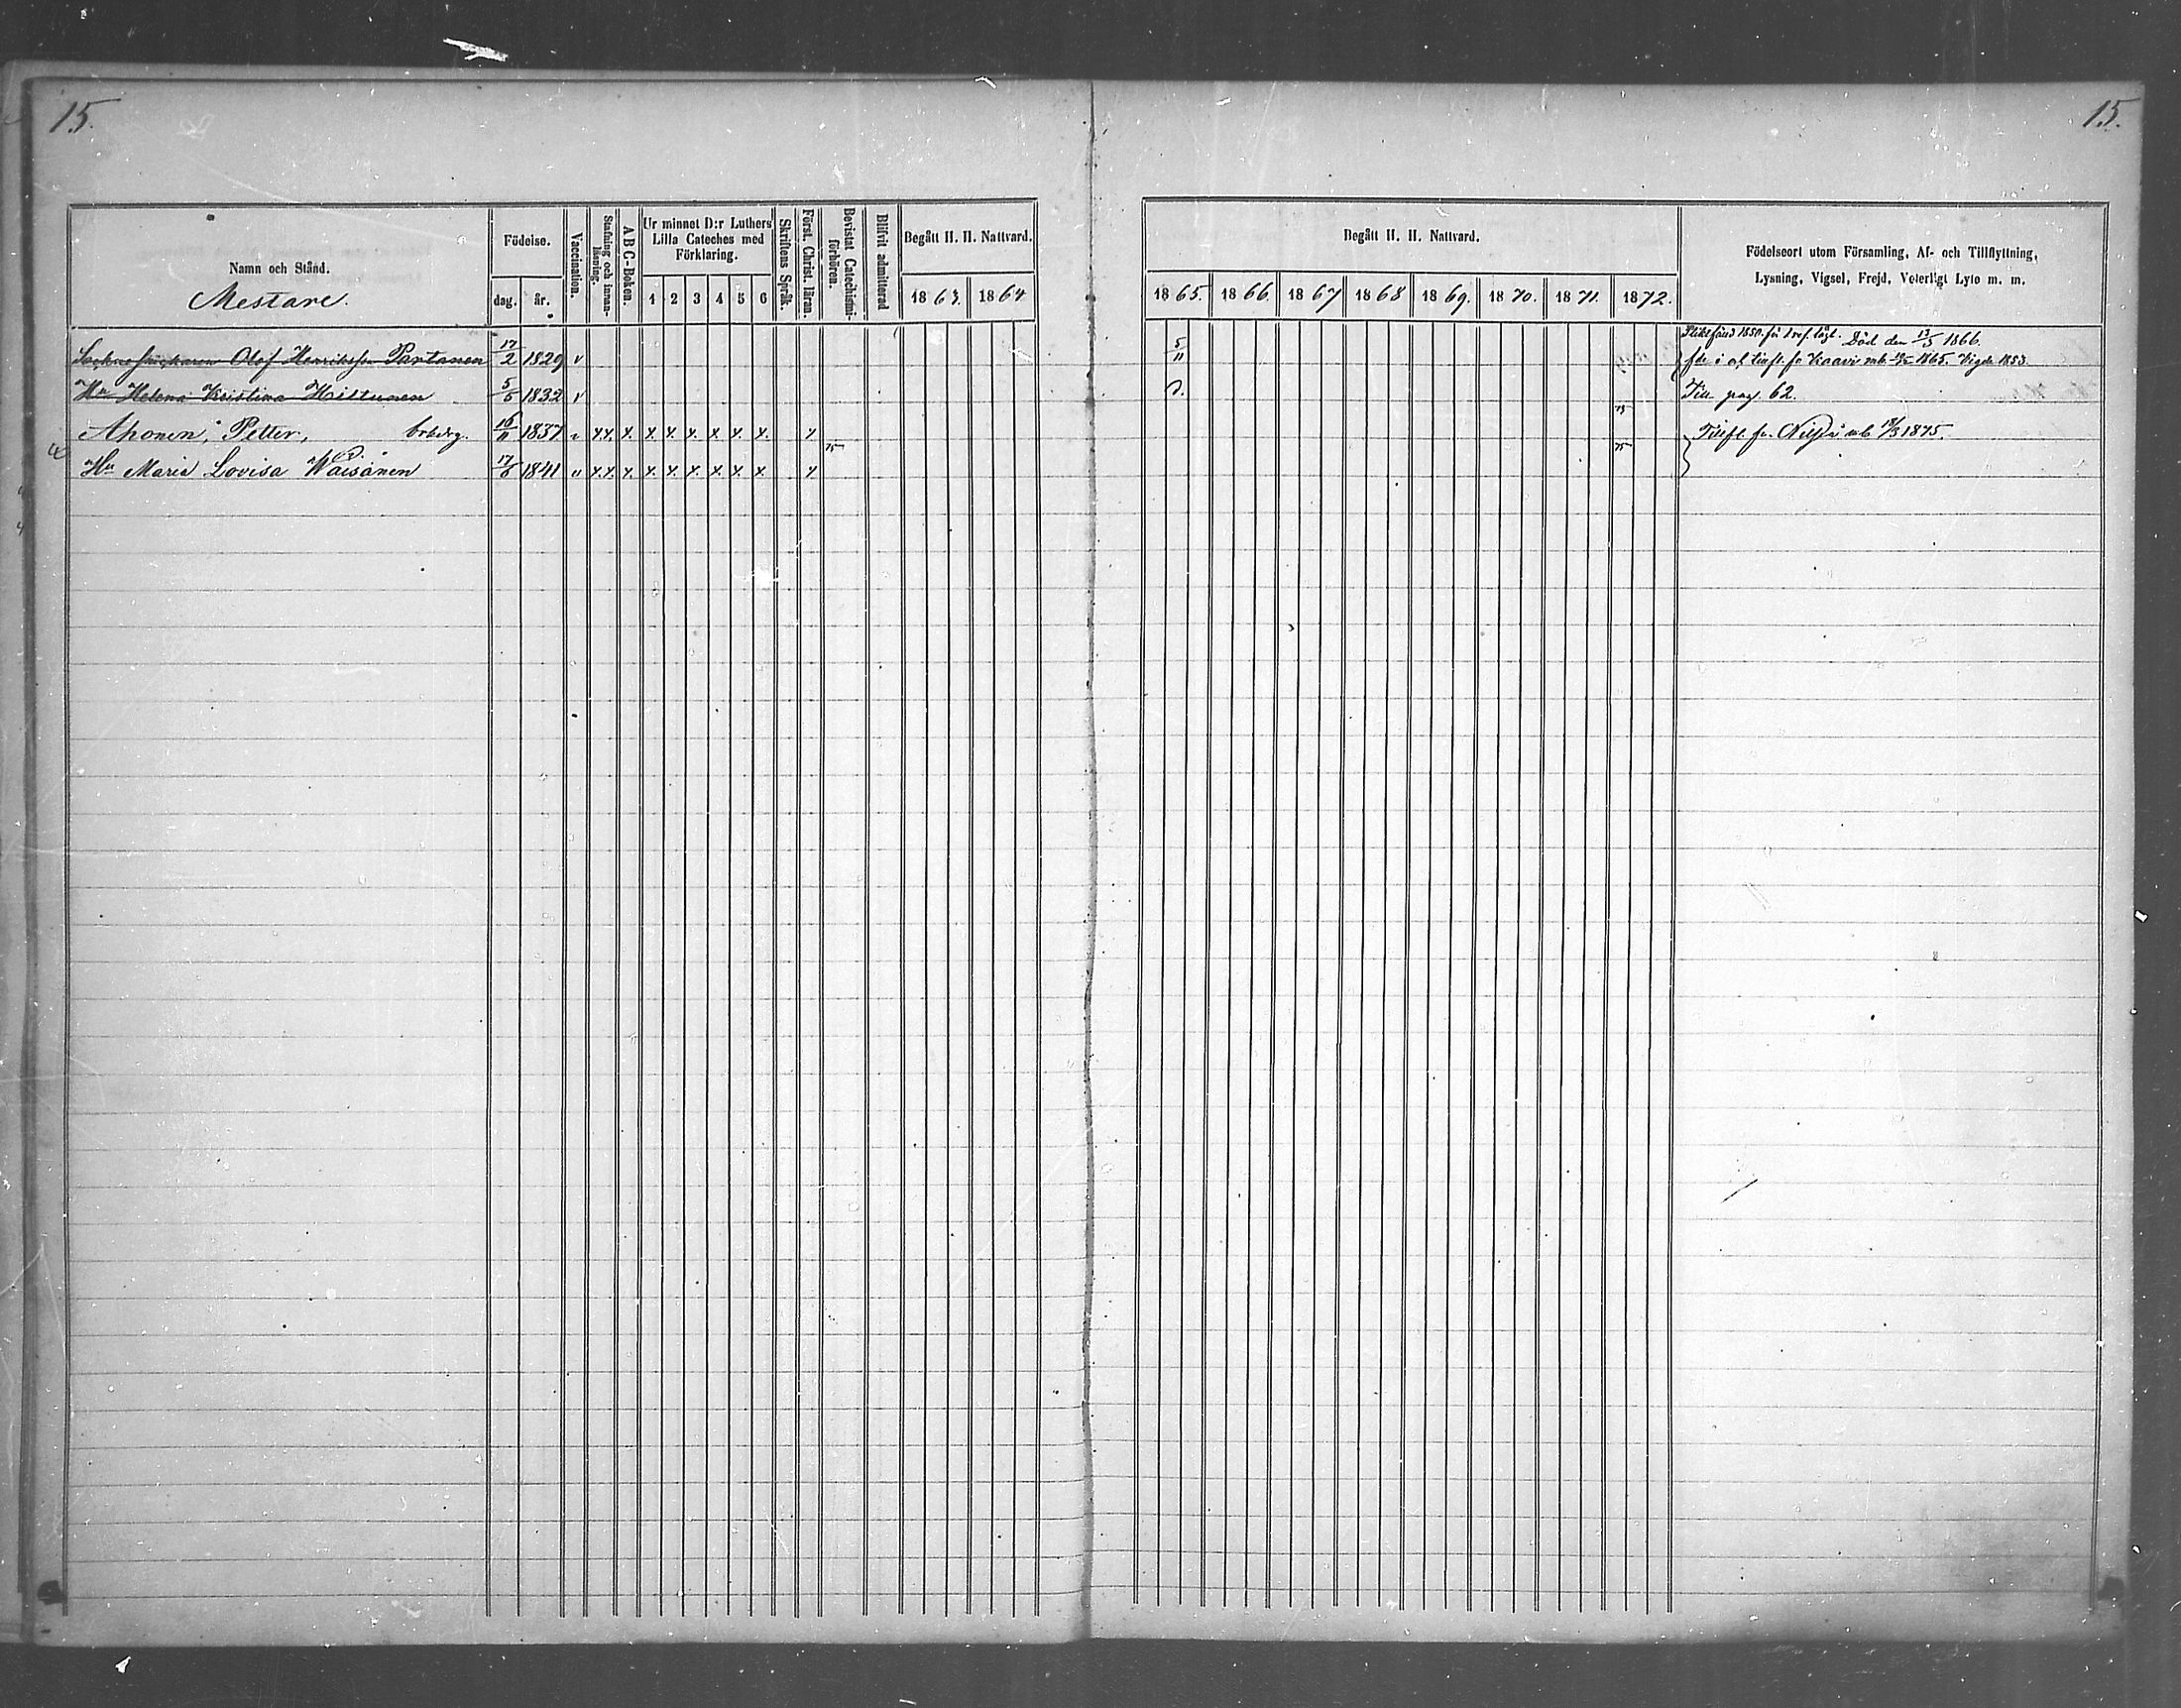 15.
15.
Namn och Stånd.
Mestare.
Födelse.
dag. år.
Vaccination.
Stafning och innan-läsning.
A B C-Boken.
Ur minnet D:r Luthers
Lilla Cateches med
Förklaring.
1 2 3 4 5 6
Skriftens Språk.
Först. Christ. läran.
Bevistat Catechismi-förhören.
Blifvit admitterad
Begått H. H. Nattvard.
1863. 1864
Begått H. H. Nattvard.
1865. 1866. 1867 1868 1869. 1870. 1871. 1872.
Födelseort utom Församling, Af- och Tillflyttning,
Lysning, Vigsel, Frejd, Veterligt Lyte m. m.
Olof Henriksson Partanen 17/2 1829 v 5/11 Död den 13/5 1866.
fr Kaavi 1865. Vigde 1853.
Hu Helena Kristina Hiltunen 5/6 1832 v Till pag. 62.
Ahonen, Petter, 16/11 1837 x.x. x. x. x. x. x. x. x. x Tillfl. fr. Nilsiä 1875.
Hu Maria Lovisa Waisänen 17/6 1841 x.x. x. x. x. x. x. x. x x